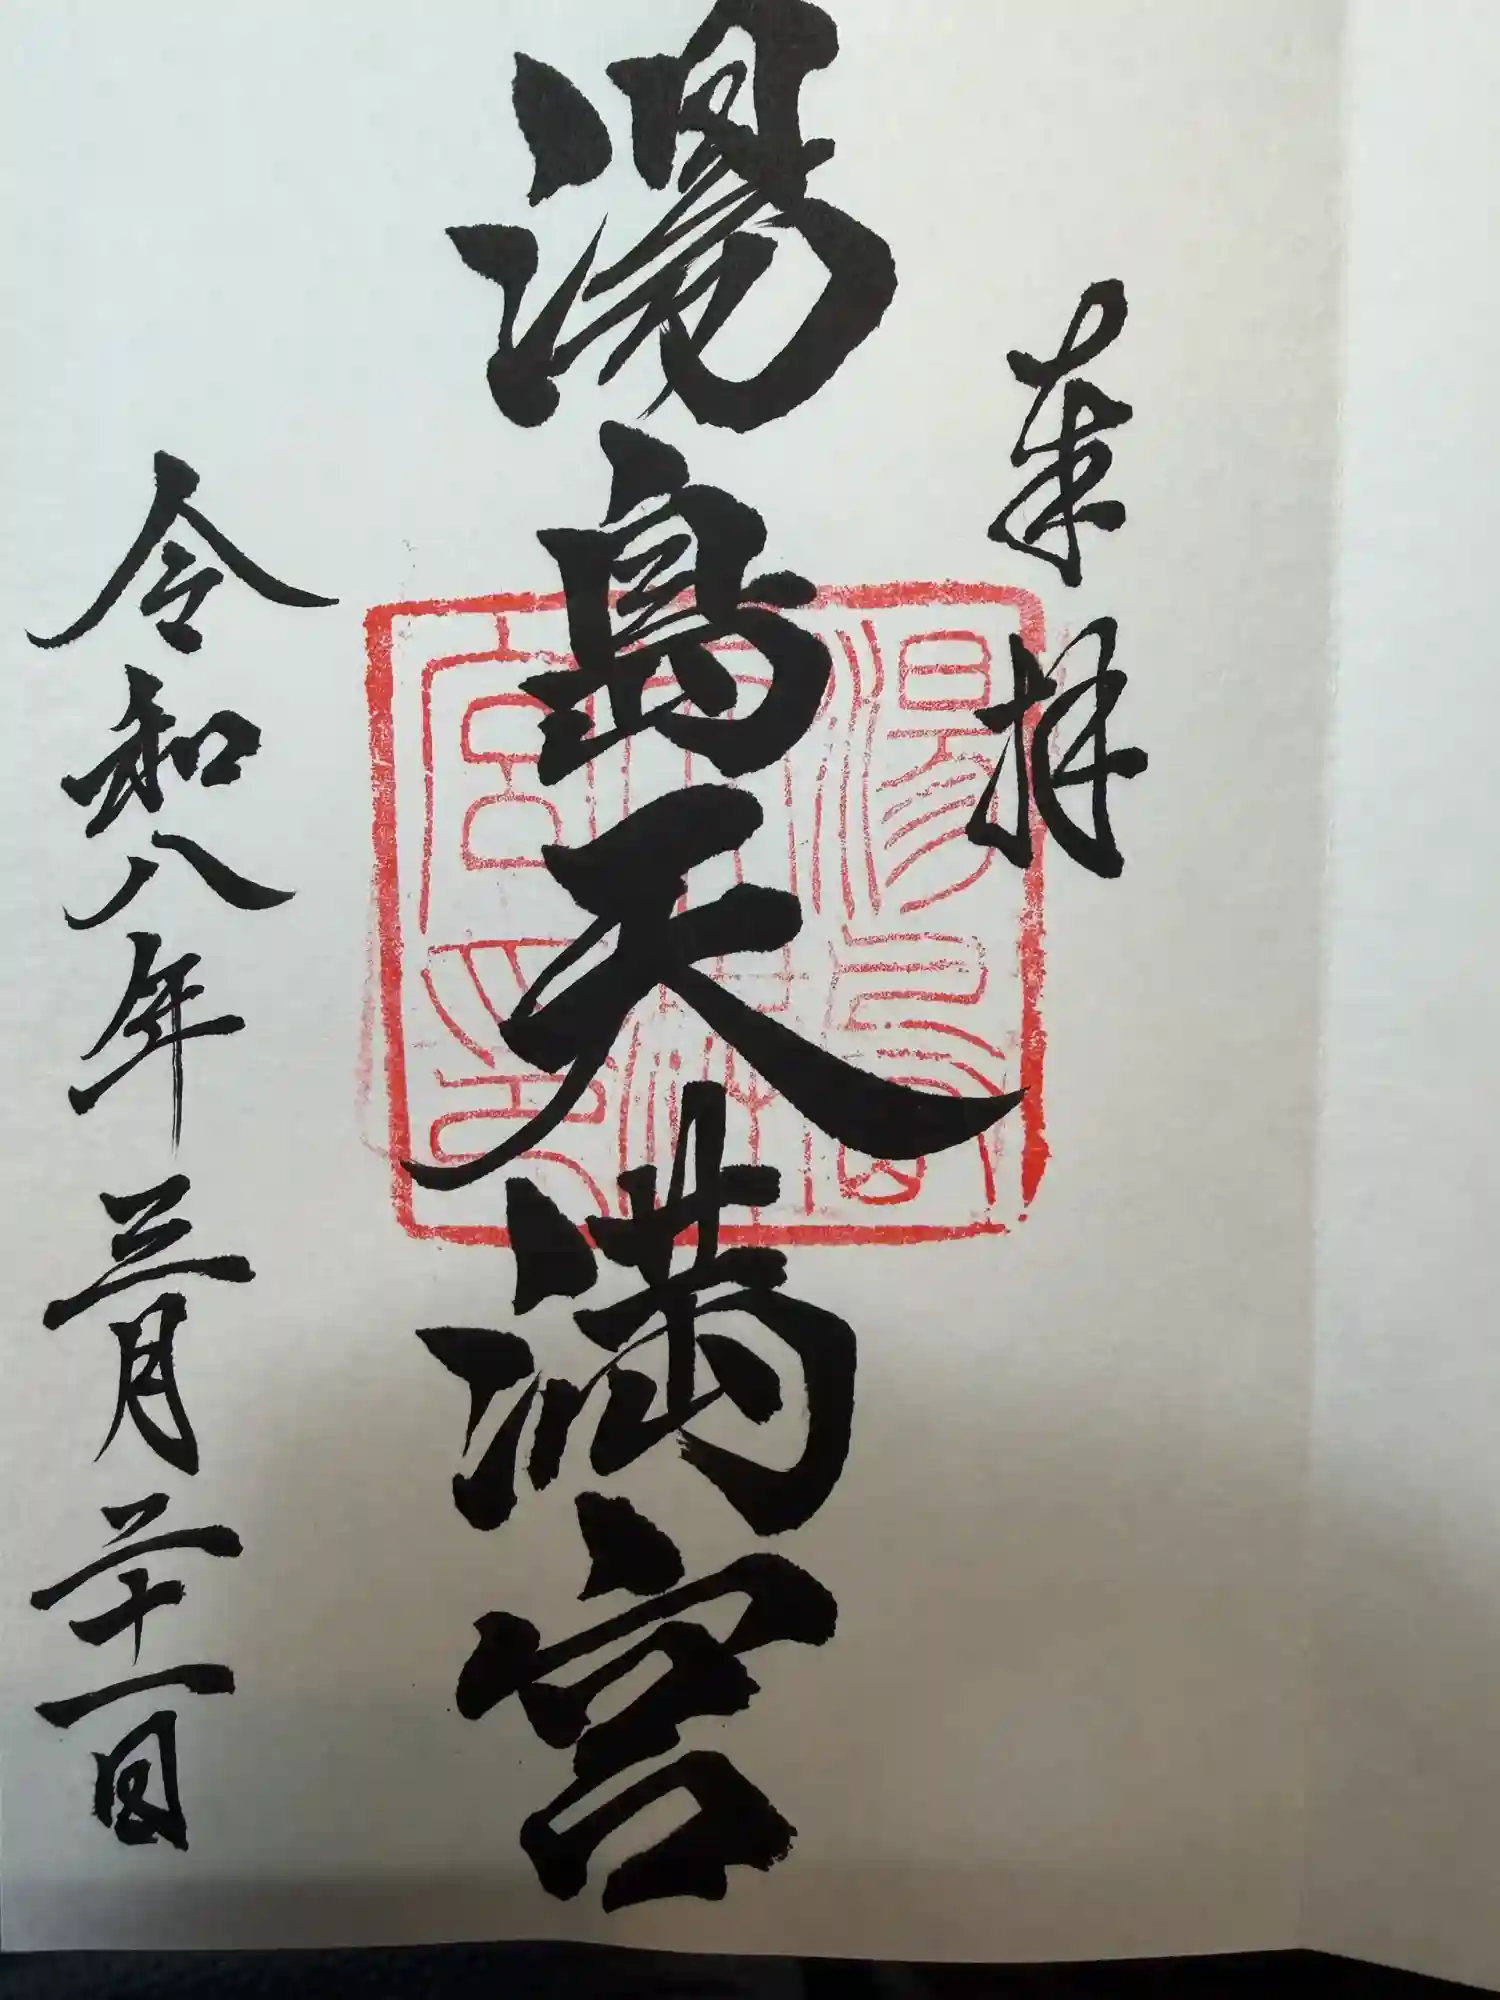 奉拝
湯島天満宮
令和八年三月二十一日
湯島天神社宮之印